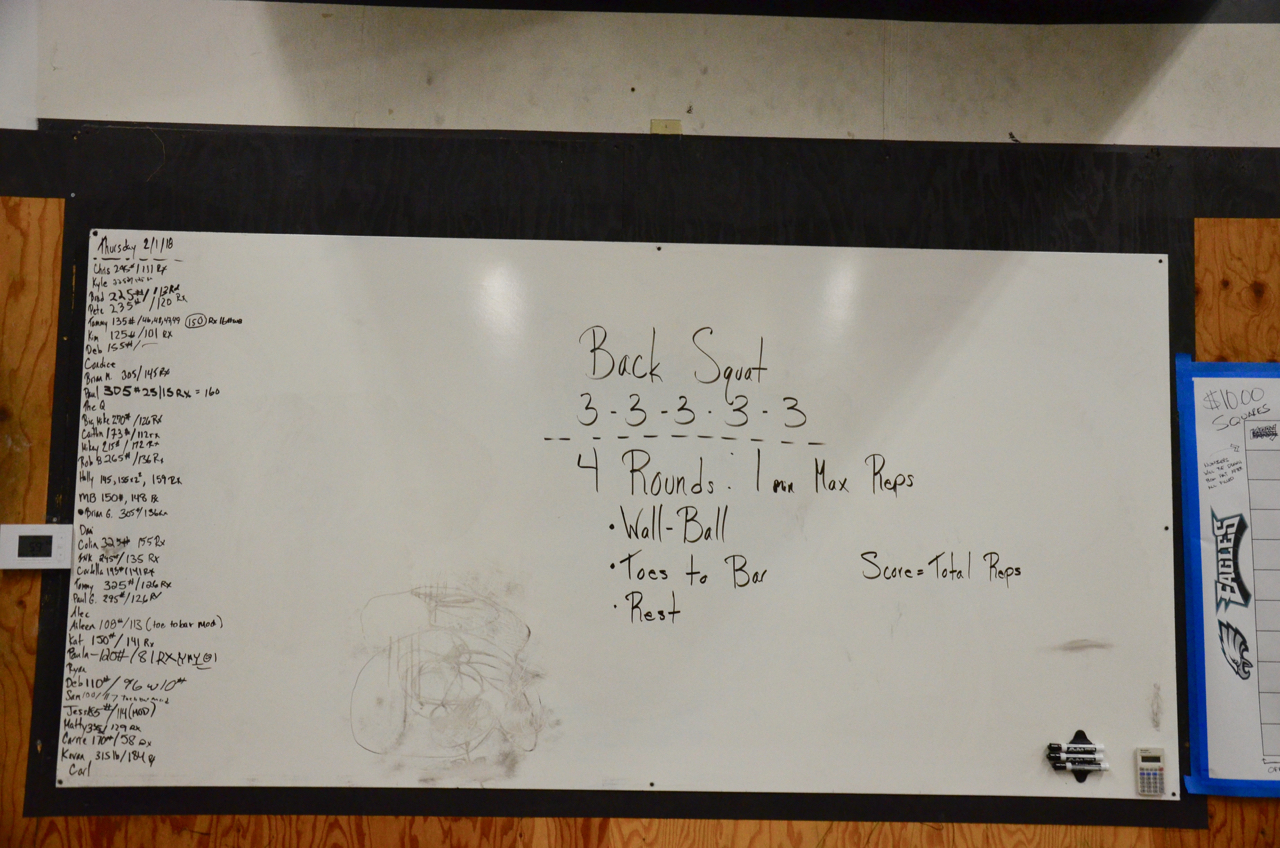 Thursday 2/1/18
Chris 245# / 131 Rx
Kyle
Brad 225#/
Pete 235# / 120 Rx
Tommy 135# / 46,48,49,49 (150) Rx
Kim 125# / 101 Rx
Deb 155# / —
Candice
Brian M. 305/145 Rx
Paul 305# 25/15 Rx = 160
The Q
Big Mike 270# /126 Rx
Caitlin 173# / 112 rx
Mikey 215# / 172 Rx
Rob B 265# /136 Rx
Holly 145, 155x2², 159 Rx
MB 150#, 148 Rx
• Brian G. 305#/136 Rx
Dni
Colin 325# 155 Rx
245#/135 Rx
195#/141 Rx
Tommy 325#/126 Rx
Paul G. 295#/126 RX
Alec
Aileen 108#/113 (toe to bar mod)
Kat 150#/ 141 Rx
Paula - 120# / 81 RX
Ryan
Deb 110# / 96 w 10#
Sam
Jess 85#/114 (MOD)
Matty 335/129 Rx
Carrie 170#/58 Rx
315 lb/184
Carl
Back Squat
3 - 3 - 3 - 3 - 3
4 Rounds : 1 min Max Reps
• Wall-Ball
• Toes to Bar
Score = Total Reps
• Rest
$10.00
SQUARES
NUMBERS
WILL BE DRAWN
EAGLES